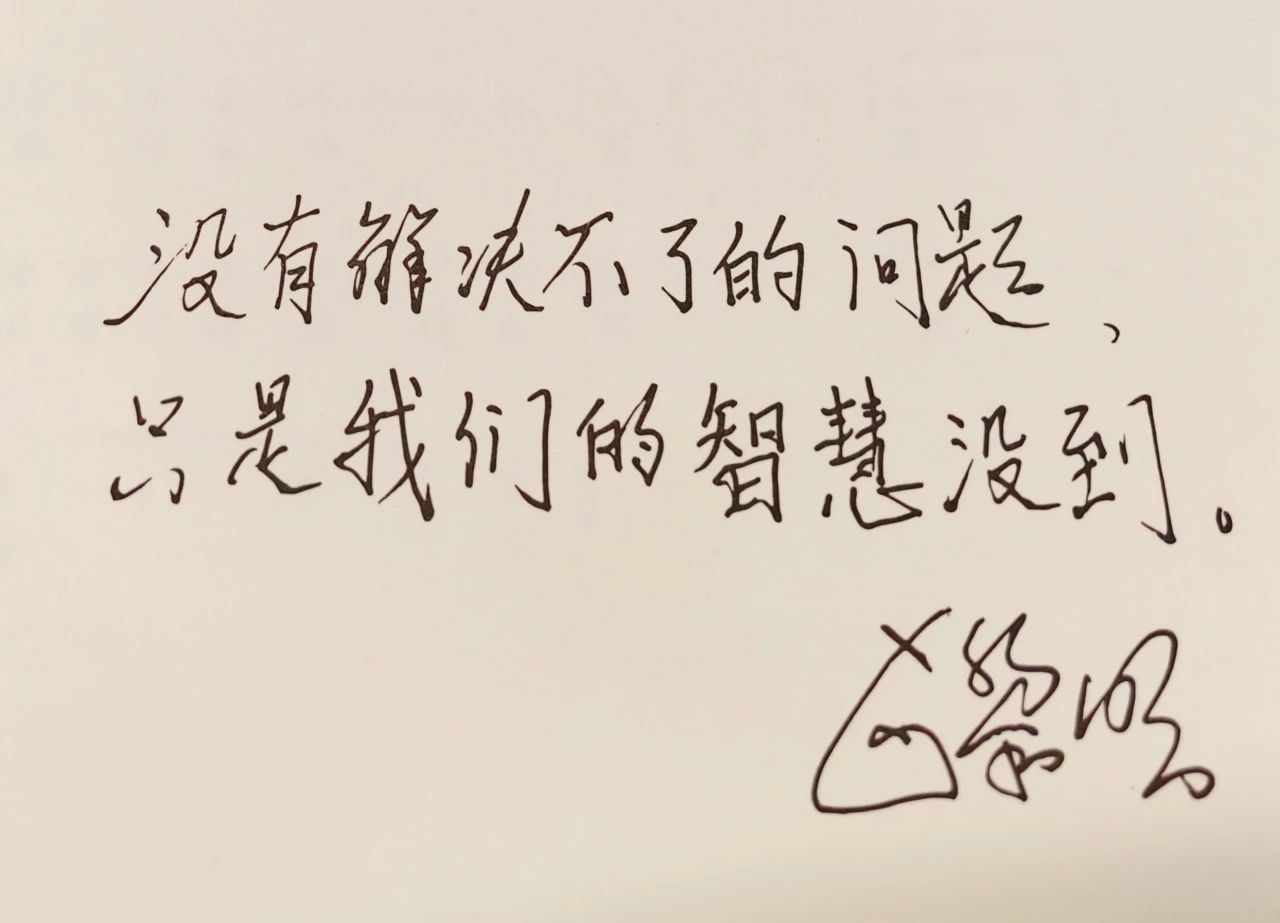 没有解决不了的问题，
只是我们的智慧没到。
黎明